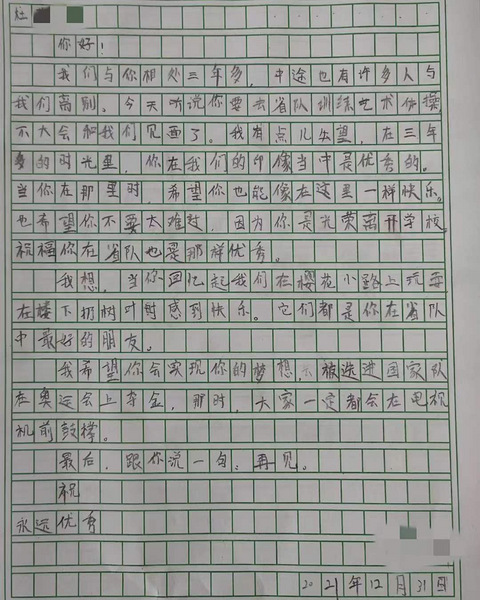 你好！
我们与你相处三年多，中途也有许多人与
我们离别。今天听说你要去省队训练艺术体操，
不大会和我们见面了。我有点儿失望，在三年
多的时光里，你在我们的印像当中是优秀的。
当你在那里时，希望你也能像在这里一样快乐。
也希望你不要太难过，因为你是光荣离开学校，
祝福你在省队也是那样优秀。
我想，当你回忆起我们在樱花小路上玩耍
在楼下扔树叶时感到快乐。它们都是你在省队
中最好的朋友。
我希望你会实现你的梦想，被选进国家队
在奥运会上夺金，那时，大家一定都会在电视
机前鼓掌。
最后，跟你说一句：再见。
祝
永远优秀
2021年12月31日